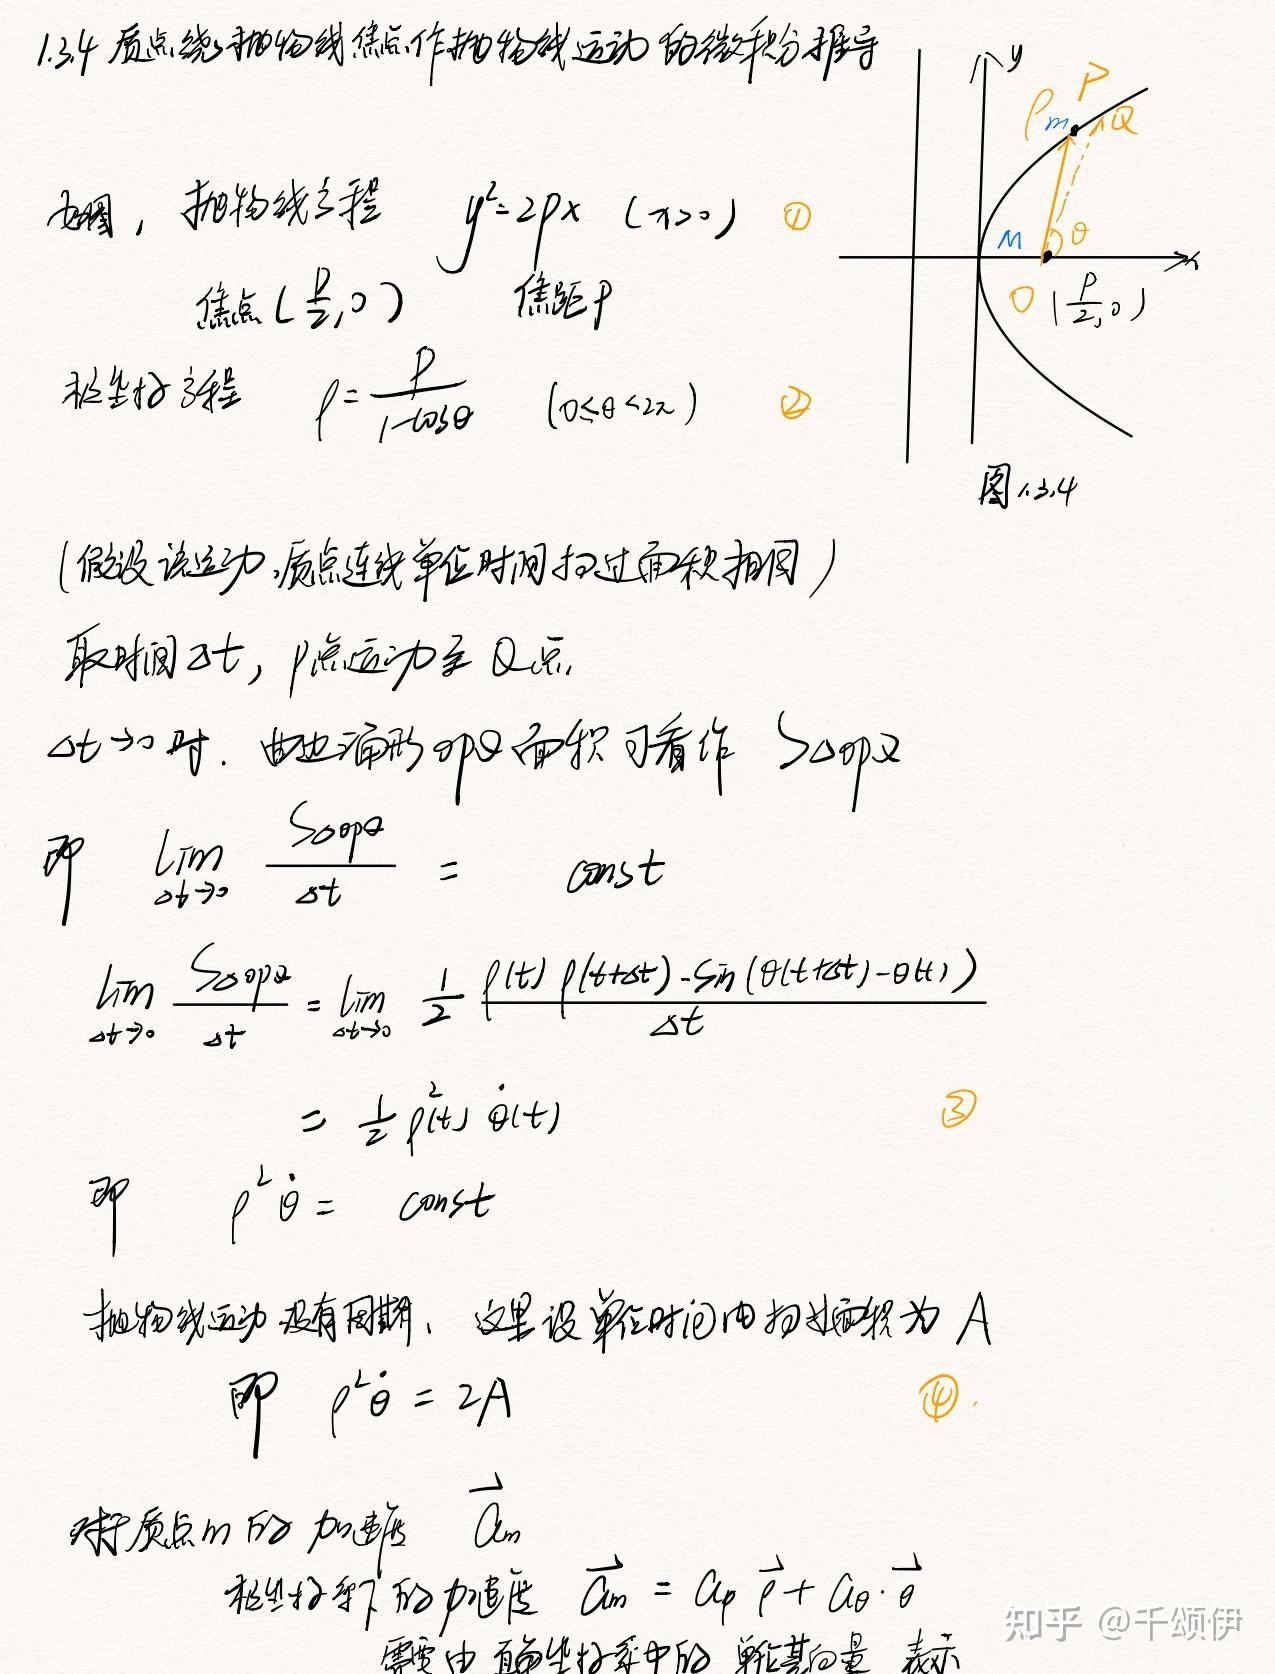 1.3.4 质点绕抛物线焦点作抛物线运动的微积分推导
y
P
ρ m Q
M θ
x
O (p/2, 0)
图1.3.4
如图, 抛物线方程 y²=2px (x>0) ①
焦点(p/2, 0) 焦距p
极坐标方程 ρ = p/(1-cosθ) (0≤θ<2π) ②
(假设该运动,质点连线单位时间扫过面积相同)
取时间Δt, P点运动至Q点
Δt→0时. 曲边扇形OPQ面积可看作 S△OPQ
即 lim Δt→0 S△OPQ/Δt = const
lim Δt→0 S△OPQ/Δt = lim Δt→0 1/2 ρ(t) ρ(t+Δt)·Sin(θ(t+Δt)-θ(t))/Δt
= 1/2 ρ²(t) θ̇(t) ③
即 ρ²θ̇ = const
抛物线运动没有周期, 这里设单位时间内扫过面积为 A
即 ρ²θ̇ = 2A ④.
对于质点m的加速度 a⃗m
极坐标系下的加速度 a⃗m = aρ ρ⃗ + aθ·θ⃗
需要由直角坐标系中的单位基向量 表示
知乎 @千颂伊